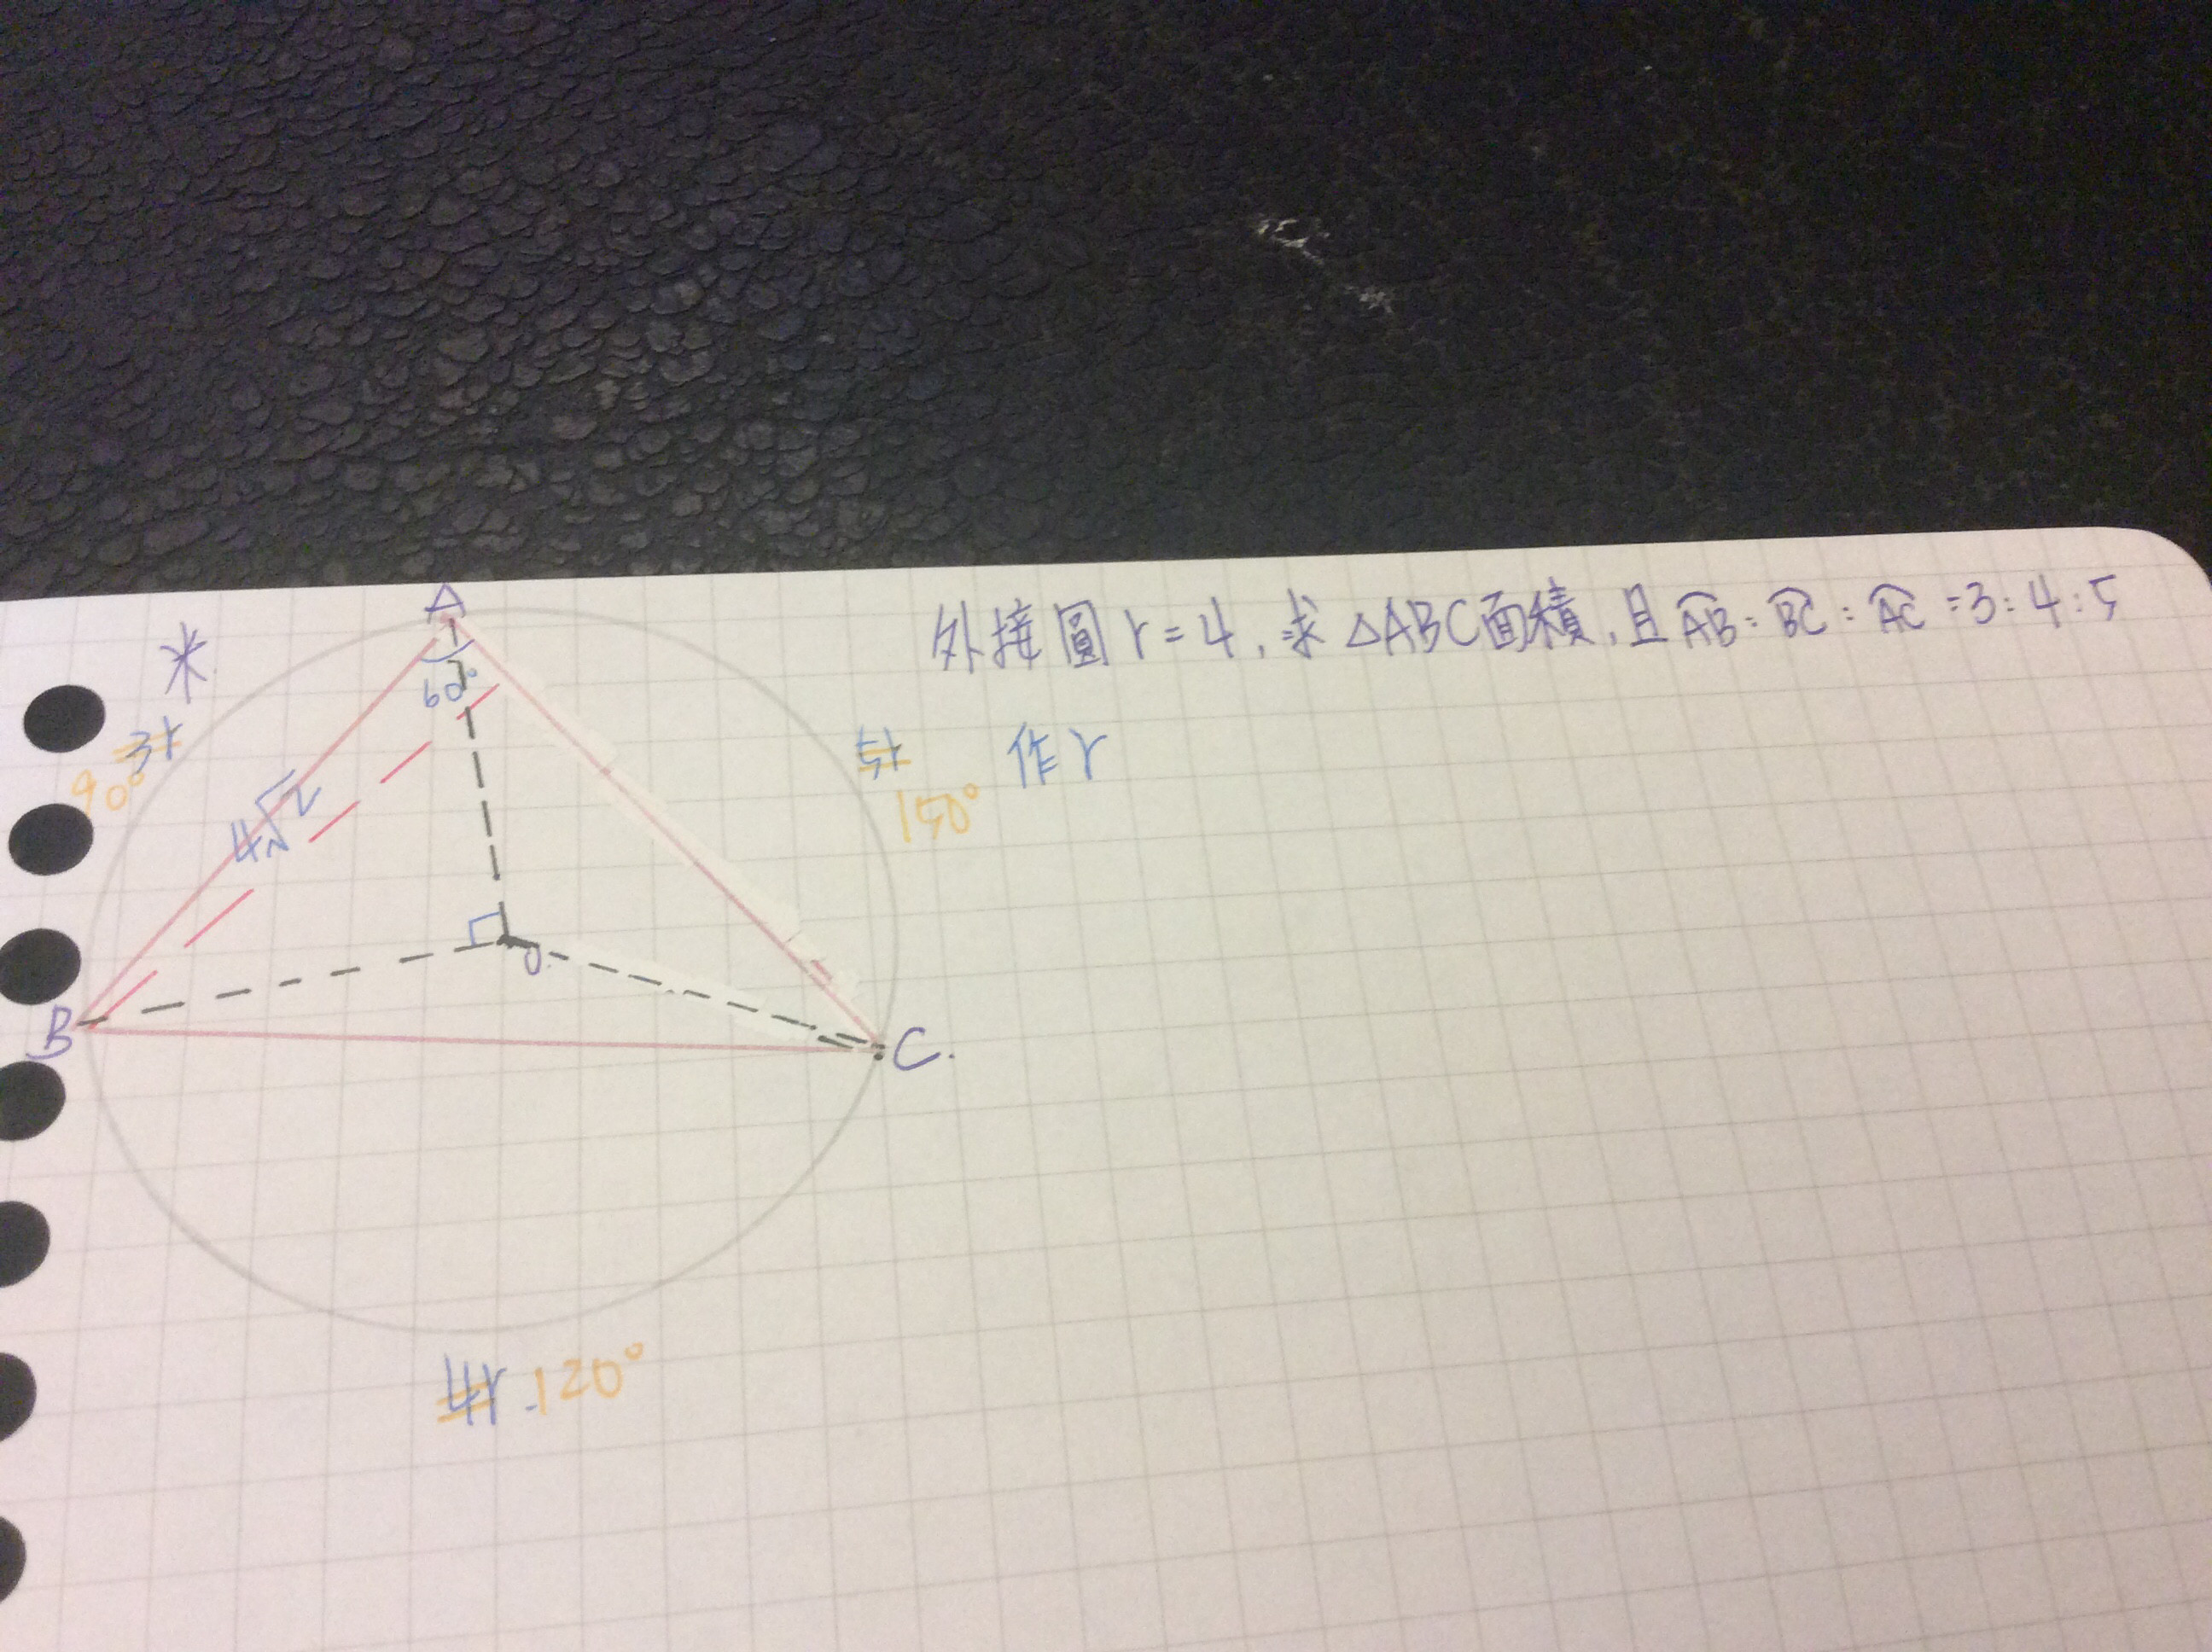 外接圓r=4,求△ABC面積,且A͡B:B͡C:A͡C=3:4:5
作r
※
A
60°
3r
90°
4√2
5r
150°
O.
B
C.
4r
120°